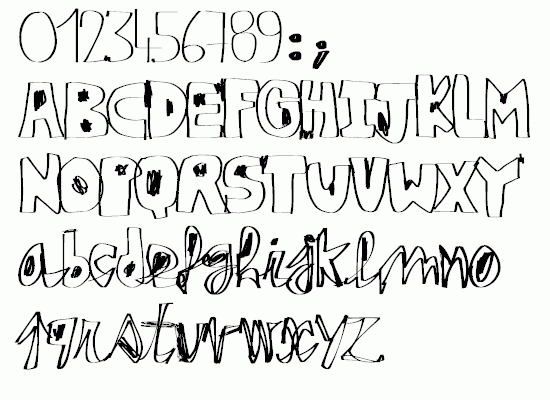 0123456789:;
ABCDEFGHIJKLM
NOPQRSTUVWXY
abcdefghijklmno
pqrstuvwxyz